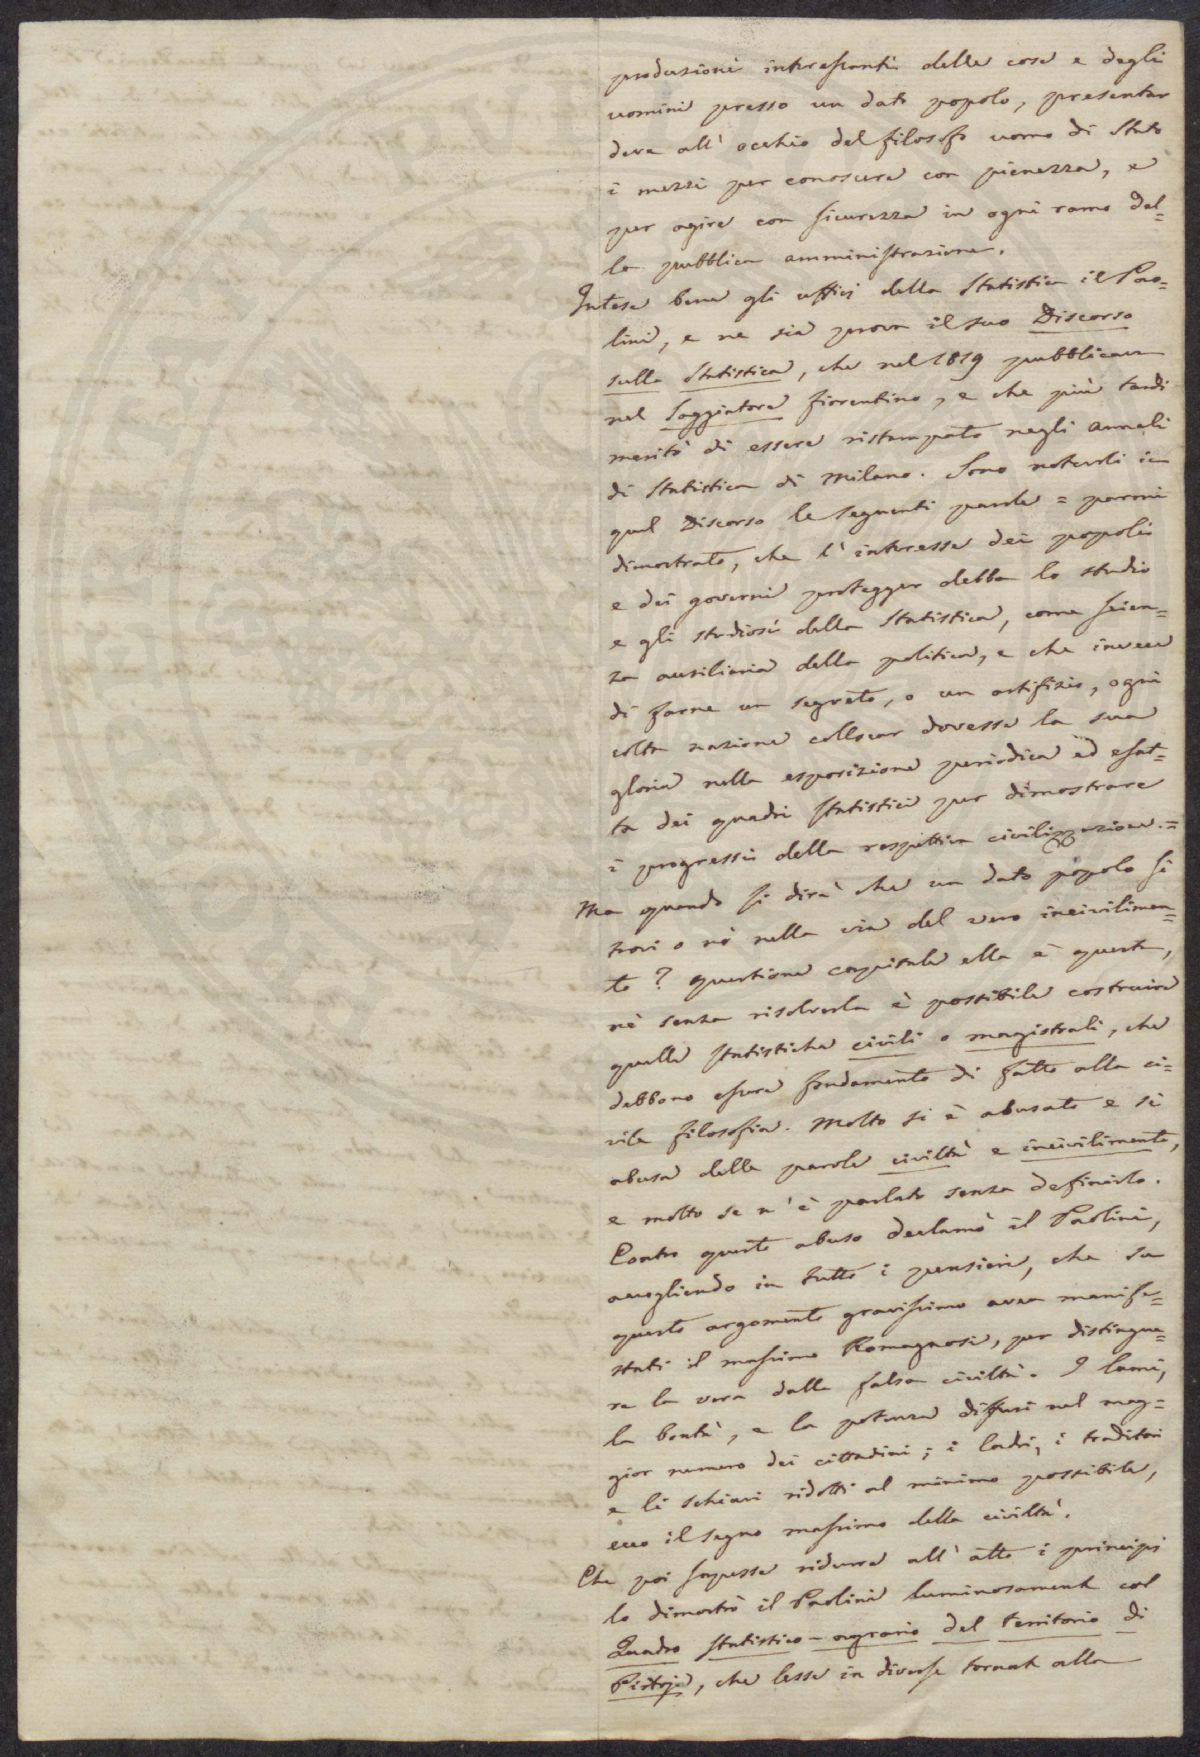 produzioni interessanti delle cose e degli
uomini presso un dato popolo, presentar
deve all' occhio del filosofo uomo di Stato
i mezzi per conoscere con pienezza, e
per agire con sicurezza in ogni ramo del=
la pubblica amministrazione.
Intese bene gli uffici della Statistica il Pao=
lini, e ne sia prova il suo Discorso
sulla Statistica, che nel 1819 pubblicava
nel Saggiatore fiorentino, e che più tardi
meritò di essere ristampato negli Annali
di Statistica di Milano. Sono notevoli in
quel Discorso le seguenti parole = parmi
dimostrato, che l' interesse dei popoli
e dei governi protegger debba lo studio
e gli studiosi della Statistica, come scien=
za ausiliaria della politica, e che invece
di farne un segreto, o un artifizio, ogni
colta nazione collocar dovesse la sua
gloria nella esposizione periodica ed esat=
ta dei quadri statistici per dimostrare
i progressi della respettiva civilizzazione.=
Ma quando si dirà che un dato popolo si
trovi o nò nella via del vero incivilimen=
to? questione capitale ella è questa,
nè senza risolverla è possibile costruire
quelle statistiche civili o magistrali, che
debbono essere fondamento di fatto alla ci=
vile filosofia. Molto si è abusato e si
abusa delle parole civiltà e incivilimento,
e molto se n' è parlato senza definirlo.
Contro questo abuso declamò il Paolini,
accogliendo in tutto i pensieri, che su
questo argomento gravissimo avea manife=
stati il massimo Romagnosi, per distingue=
re la vera dalla falsa civiltà. I lumi,
la bontà, e la potenza diffusi nel mag=
gior numero dei cittadini; i ladri, i traditori
e li schiavi ridotti al minimo possibile,
ecco il segno massimo della civiltà.
Che poi sapesse ridurre all' atto i principj
lo dimostrò il Paolini luminosamente col
Quadro statistico-agrario del territorio di
Pistoja, che lesse in diverse tornate alla